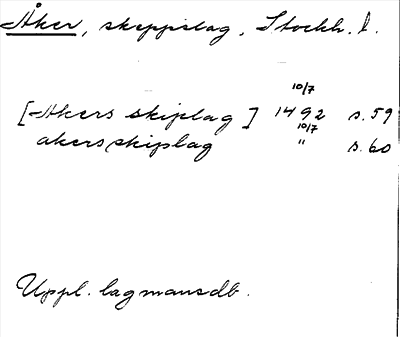 Åker, skeppslag, Stockh. l.
10/7
[Akers skiplag] 1492 s. 59
10/7
akersskiplag " s. 60
Uppl. lagmansdb.